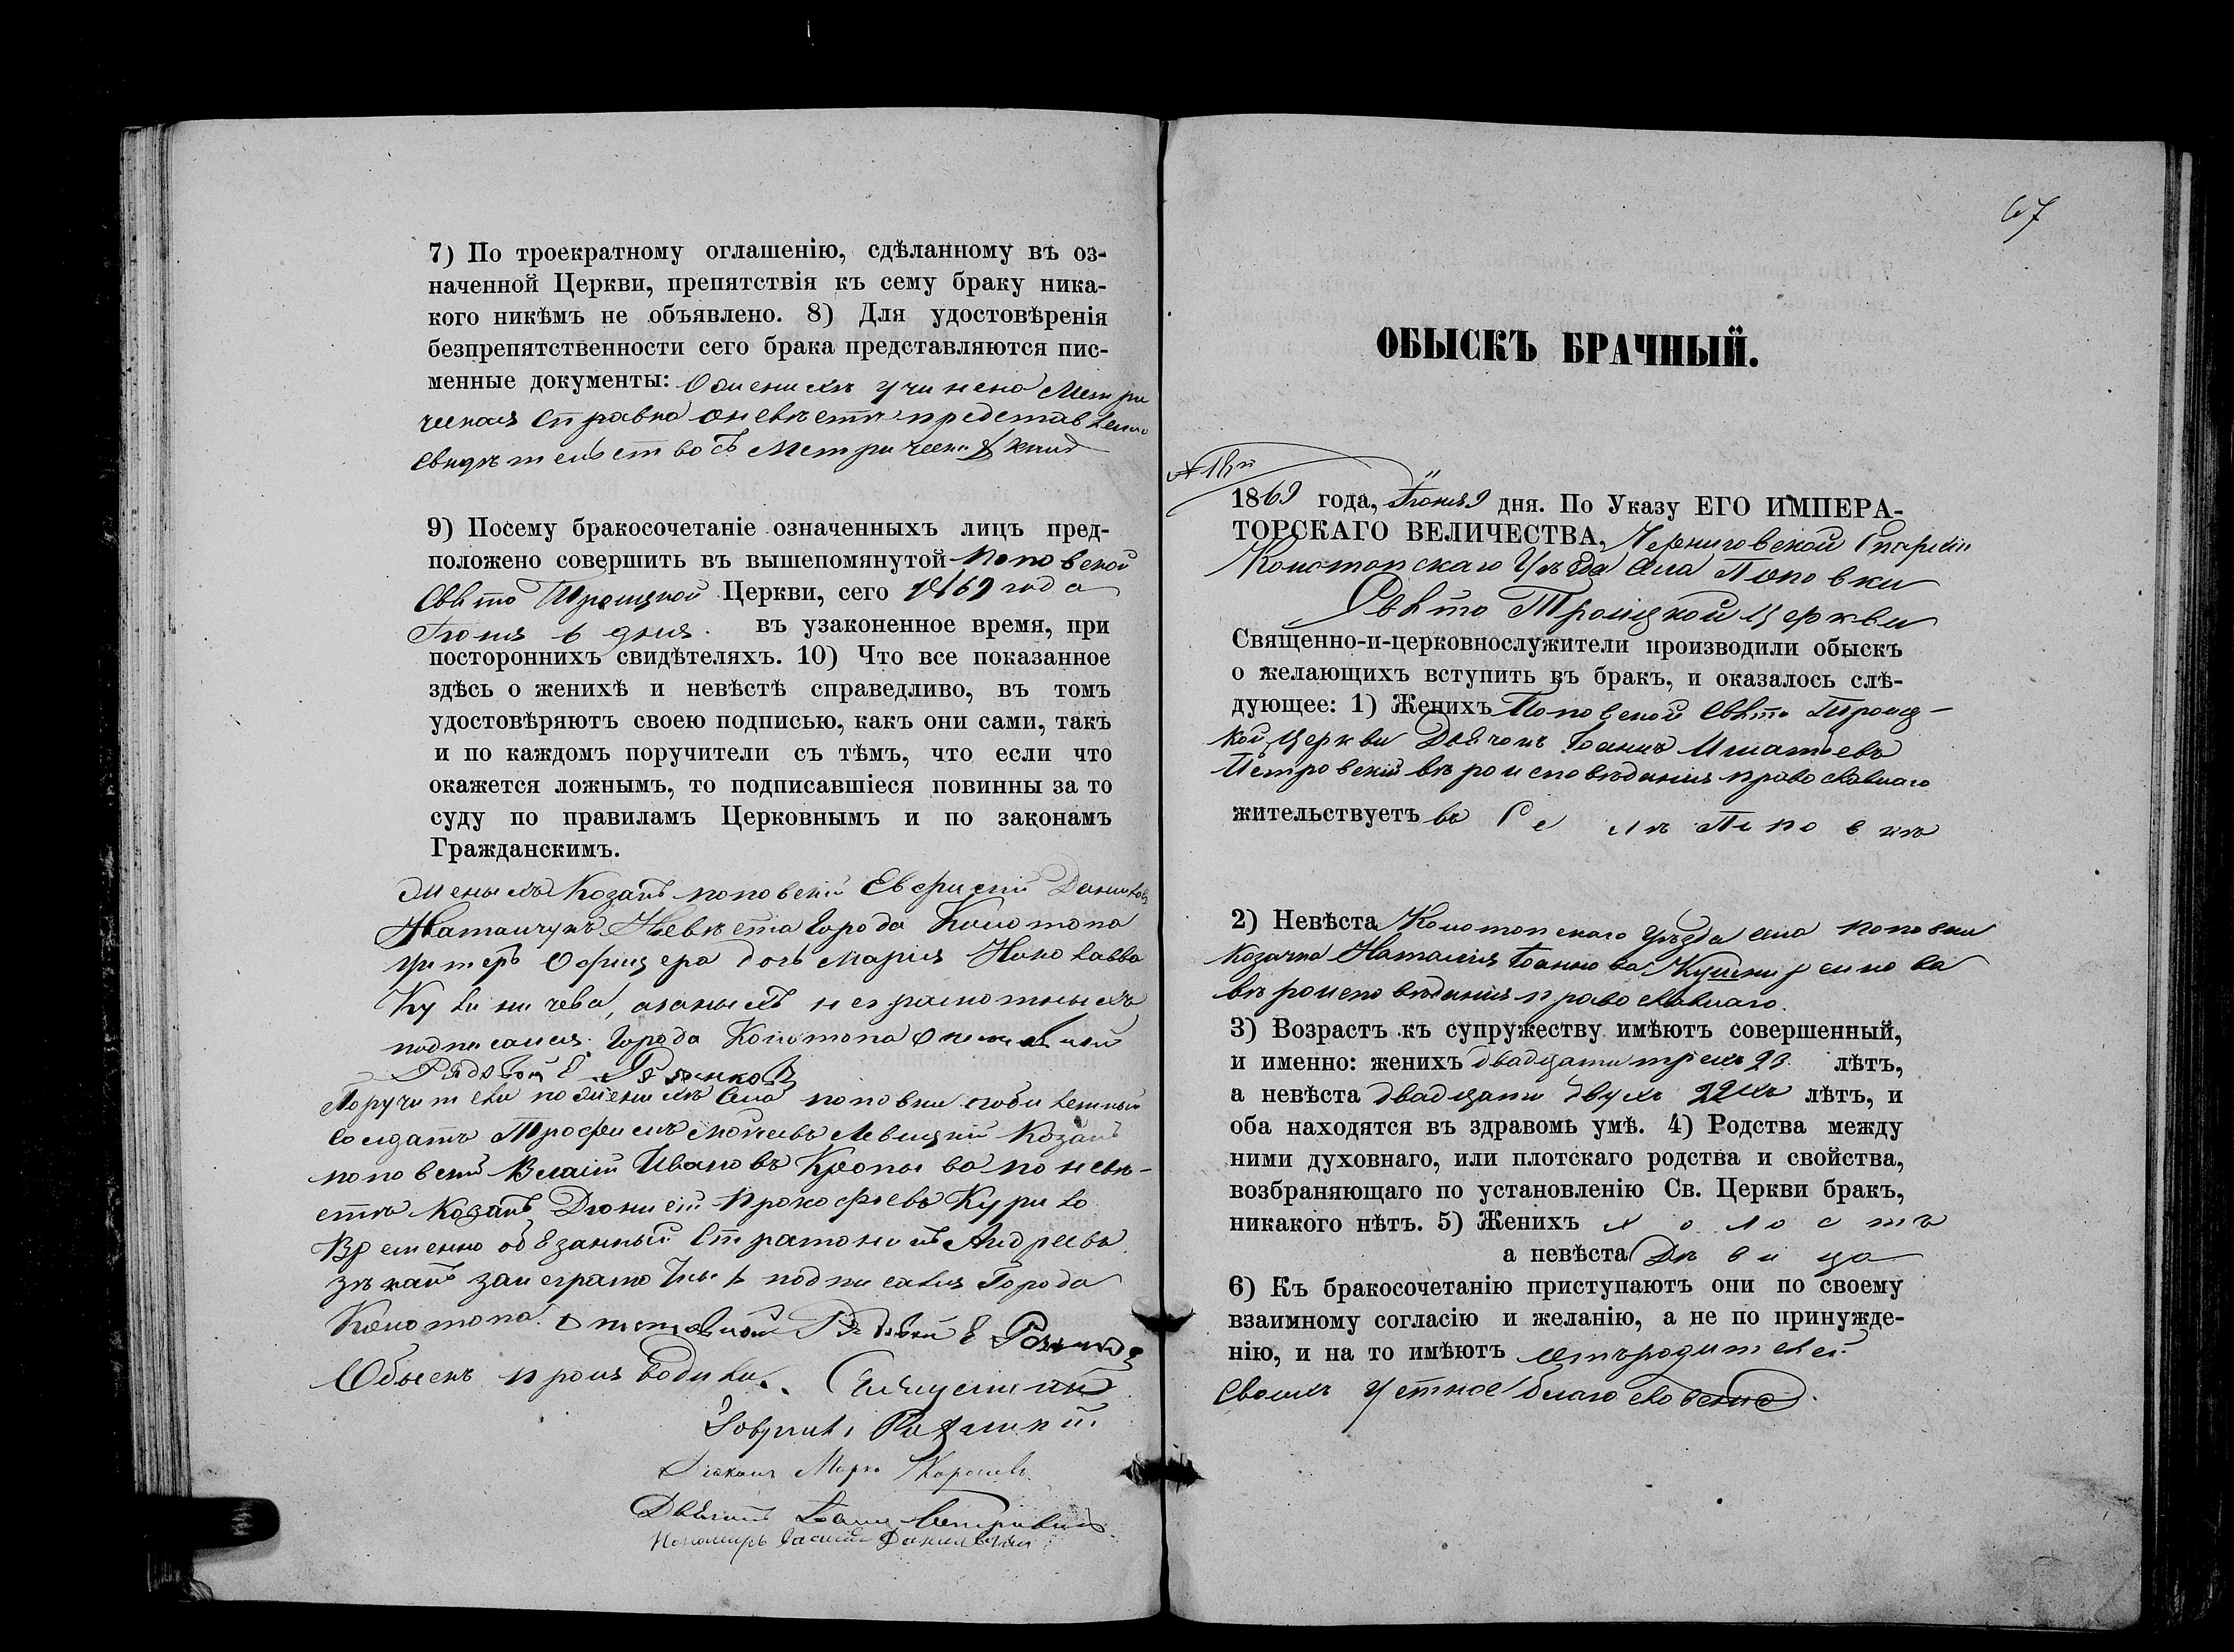 7) По троекратному оглашенію, сдѣланному въ оз-
наченной Церкви, препятствія къ сему браку ника-
кого никѣмъ не объявлено. 8) Для удостовѣренія
безпрепятственности сего брака представляются пис-
менные документы: О женихѣ учинено Метри
ческая справка о невѣстѣ представлено
свидѣтельство съ Метрически книг
9) Посему бракосочетаніе означенныхъ лицъ пред-
положено совершить въ вышепомянутой Поповской
Свято Троицкой Церкви, сего 1869 года
Іюня дня. въ узаконенное время, при
постороннихъ свидѣтеляхъ. 10) Что все показанное
здѣсь о женихѣ и невѣстѣ справедливо, въ томъ
удостовѣряютъ своею подписью, какъ они сами, такъ
и по каждомъ поручители съ тѣмъ, что если что
окажется ложнымъ, то подписавшіеся повинны за то
суду по правиламъ Церковнымъ и по законамъ
Гражданскимъ.
Женихъ Козакъ поповскій Данилов
Невѣста города Конотопа
Унтеръ Офицера дочь Марія
а за нихъ неграмотныхъ
подписался Города Конотопа отставной
Рядовой Е
Поручители по женихѣ села поповки
солдатъ Трофимъ Левицкій Козакъ
поповскій Власій Ивановъ по невѣ-
стѣ Козакъ Діонисій Прокофьевъ Курило
Временно обязанный Стратоникъ Андреевъ
за неграмотныхъ подписался Города
Конотопа отставной Рядовой Е
Обыскъ производили. Священникъ
Діаконъ Марко
Дьячокъ Іоаннъ Петровскій
Пономарь Василій Данилевскій
67
ОБЫСКЪ БРАЧНЫЙ.
1869 года, Іюня 9 дня. По Указу ЕГО ИМПЕРА-
ТОРСКАГО ВЕЛИЧЕСТВА, Черниговской Епархіи
Конотопскаго Уѣзда села Поповки
Свято Троицкой церкви
Священно-и-церковнослужители производили обыскъ
о желающихъ вступить въ бракъ, и оказалось слѣ-
дующее: 1) Женихъ Поповской Свято Троиц-
кой церкви Дьячокъ Іоаннъ Игнатьевъ
Петровскій вѣроисповѣданія православнаго
жительствуетъ въ Селѣ Поповкѣ
2) Невѣста Конотопскаго уѣзда села поповки
козачка Наталія Іоаннова Кушниренкова
вѣроисповѣданія православнаго.
3) Возрастъ къ супружеству имѣютъ совершенный,
и именно: женихъ двадцати трехъ 23. лѣтъ,
а невѣста двадцати двухъ 22хъ лѣтъ, и
оба находятся въ здравомъ умѣ. 4) Родства между
ними духовнаго, или плотскаго родства и свойства,
возбраняющаго по установленію Св. Церкви бракъ,
никакого нѣтъ. 5) Женихъ холостъ
а невѣста Дѣвица
6) Къ бракосочетанію приступаютъ они по своему
взаимному согласію и желанію, а не по принужде-
нію, и на то имѣютъ отъ родителей
своихъ устное благословение.